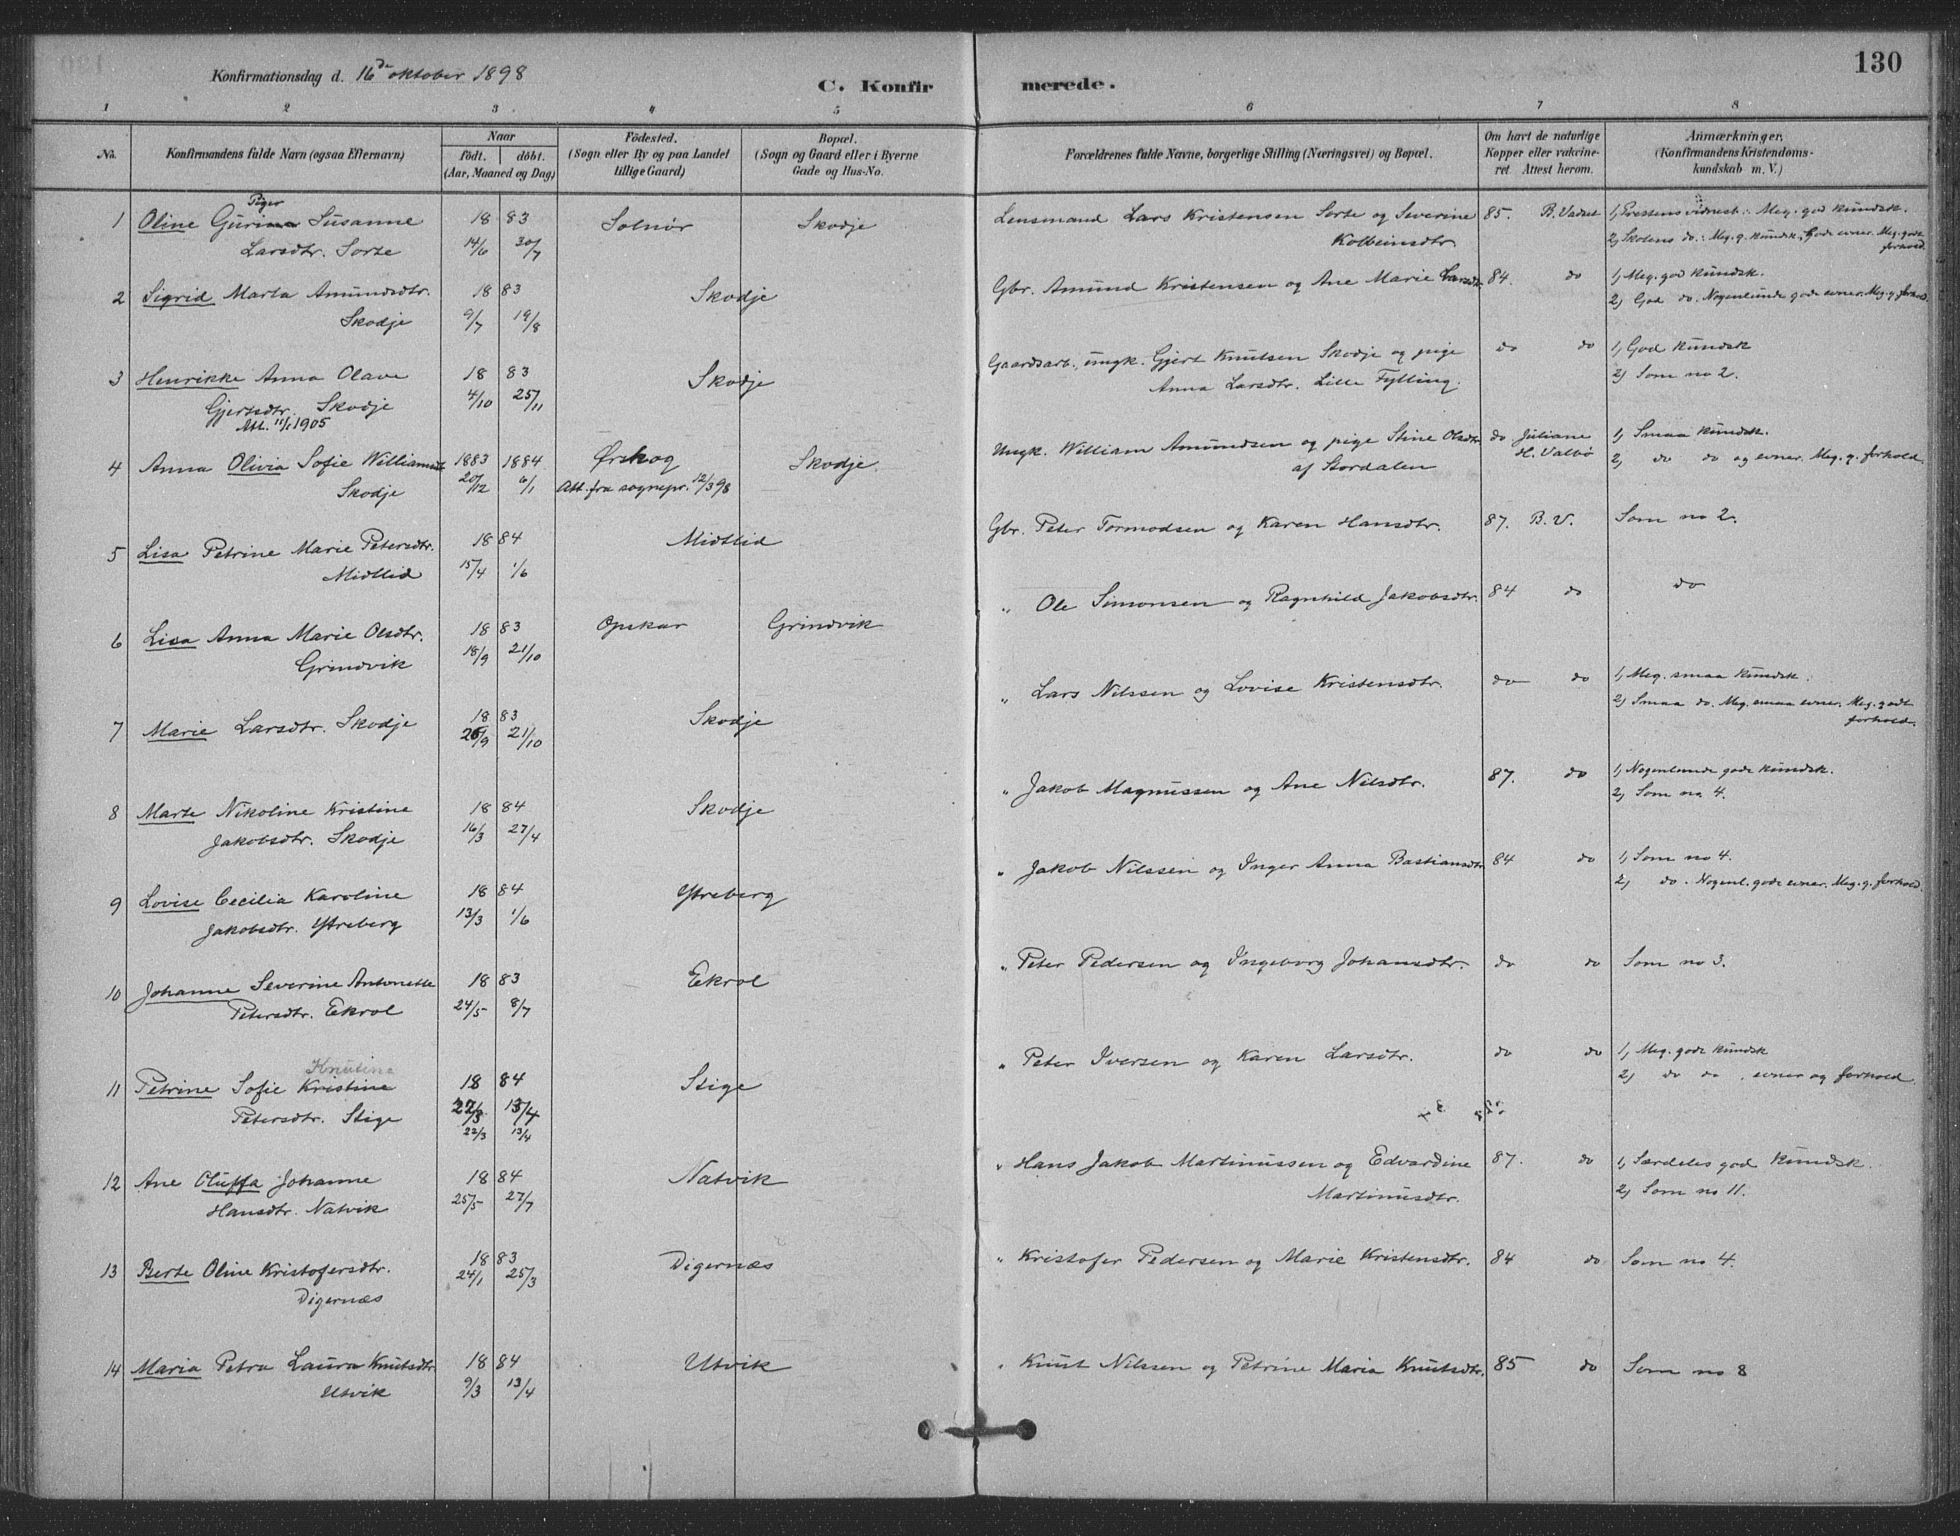 130
Konfirmationsdag d. 16de oktober 1898
C. Konfirmerede.
1 2 3 4 5 6 7 8
No. Konfirmandens fulde Navn (ogsaa Efternavn) Naar födt. döbt. (Aar, Maaned og Dag) Födested. (Sogn eller By og paa Landet tillige Gaard) Bopæl. (Sogn og Gaard eller i Byerne Gade og Hus-No. Forældrenes fulde Navne, borgerlige Stilling (Næringsvei) og Bopæl. Om havt de naturlige Kopper eller vakcineret. Attest herom. Anmærkninger. (Konfirmandens Kristendomskundskab m. V.)
Piger
1 Oline Gurina Susanne 18 83 Solnör Skodje Lensmand Lars Kristensen Sorte og Severine 85. B. Vadset 1, Prestens vidnesb.: Meg. god kundsk.
Larsdtr. Sorte 14/6 30/7 Kolbeinsdtr. 2, Skolens do.: Meg. g. kundsk., gode evner. Meg. godt forhold.
2 Sigrid Marta Amundsdtr. 18 83 Skodje Gbr. Amund Kristensen og Ane Marie Larsdtr. 84. do 1, Meg. god kundsk.
Skodje 9/7 19/8 2, God do. Nogenlunde gode evner. Meg. g. forhold.
3 Henrikke Anna Olave 18 83 Skodje Gaardsarb. ungk. Gjert Knutsen Skodje og pige do do 1, God kundsk
Gjertsdtr. Skodje 4/10 25/11 Anna Larsdtr. Lille Fylling. 2, Som no 2.
Att. 11/1 1905
4 Anna Olivia Sofie Williamsdtr 1883 1884 Ørskog Skodje. Ungk. William Amundsen og pige Stine Olsdtr do Juliane H. Valbö 1, Smaa kundsk.
Skodje 20/12 6/1 Att. fra sognepr. 12/3 98 af Stordalen 2, do do og evner. Meg. g. forhold.
5 Lisa Petrine Marie Petersdtr. 18 84 Midtlid Gbr. Peter Tormodsen og Karen Hansdtr. 87. B. V. Som no 2.
Midtlid 15/4 1/6
6 Lisa Anna Marie Olsdtr. 18 83 Opskar Grindvik " Ole Simonsen og Ragnhild Jakobsdtr. 84 do do
Grindvik 18/9 21/10
7 Marie Larsdtr. Skodje 18 83 Skodje " Lars Nilssen og Lovise Kristensdtr. do do 1, Meg. smaa kundsk.
/9 21/10 2, Smaa do. Meg. smaa evner. Meg. godt forhold.
8 Marte Nikoline Kristine 18 84 Skodje " Jakob Magnussen og Ane Nilsdtr. 87. do 1, Nogenlunde gode kundsk.
Jakobsdtr. Skodje 16/3 27/4 2, Som no 4.
9 Lovise Cecilia Karoline 18 84 Ytreberg " Jakob Nilssen og Inger Anna Bastiansdtr 84 do 1, Som no 4.
Jakobsdtr. Ytreberg 13/3 1/6 2, do. Nogenl. gode evner. Meg. g. forhold.
10 Johanne Severine Antonette 18 83 Ekrol " Peter Pedersen og Ingeborg Johansdtr. do do Som no 3.
Petersdtr. Ekrol 24/5 8/7
Knutina
11 Petrine Sofie Kristine 18 84 Stige " Peter Iversen og Karen Larsdtr. do do 1, Meg. gode kundsk
Petersdtr. Stige 22/3 13/4 2, do do. evner og forhold.
22/3 13/4
12 Ane Oluffa Johanne 18 84 Natvik " Hans Jakob Martinussen og Edvardine 87. do 1, Særdeles god kundsk.
Hansdtr. Natvik 25/5 27/7 Martinusdtr. 2, Som no 11.
13 Berte Oline Kristofersdtr. 18 83 Digernæs " Kristofer Pedersen og Marie Kristensdtr. 84 do Som no 4.
Digernæs 24/1 25/3
14 Maria Petra Laura Knutsdtr 18 84 Utvik " Knut Nilssen og Petrine Maria Knutsdtr. 85 do Som no 8
Utvik 9/3 13/4